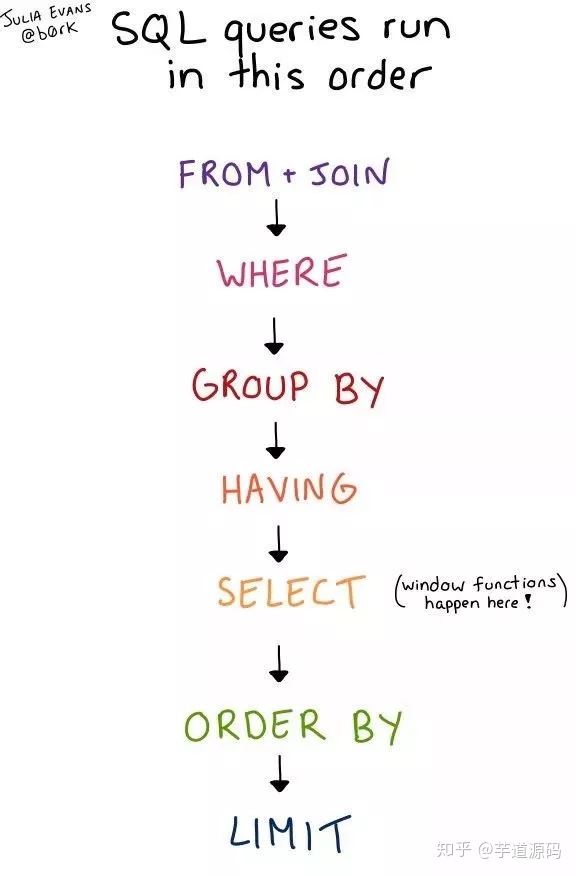 JULIA EVANS
@b0rk
SQL queries run
in this order
FROM + JOIN
WHERE
GROUP BY
HAVING
SELECT (window functions
happen here!)
ORDER BY
LIMIT
知乎 @芋道源码